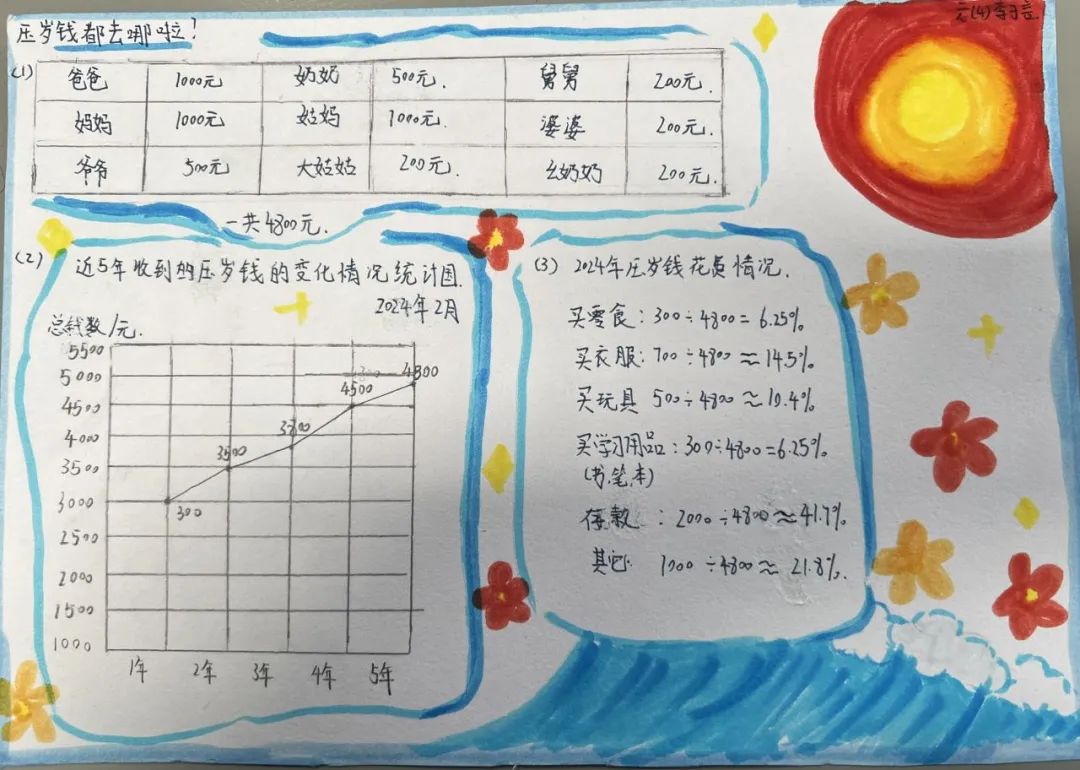 压岁钱都去哪啦!
(1)
爸爸 1000元 奶奶 500元. 舅舅 200元.
妈妈 1000元 姑妈 1000元. 婆婆 200元.
爷爷 500元 大姑姑 200元. 幺奶奶 200元.
一共4800元.
(2) 近5年收到的压岁钱的变化情况统计图
2024年2月
总钱数/元.
5500
5000
4500
4000
3500
3000
2500
2000
1500
1000
300
3500
3700
4500
4800
1年 2年 3年 4年 5年
(3) 2024年压岁钱花费情况.
买零食:300÷4800=6.25%
买衣服:700÷4800≈14.5%
买玩具 500÷4800≈10.4%
买学习用品:300÷4800=6.25%
(书,笔,本)
存款:2000÷4800≈41.7%
其它: 1000÷4800≈21.8%.